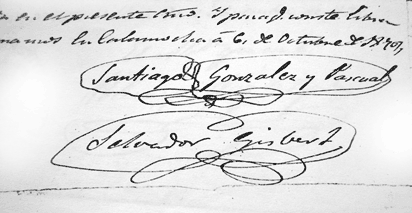 en el presente Evo. Y para q. conste libra
mamos en Calamocha á 6, de Octubre de 1901,
Santiago González y Pascual
Salvador Gisbert